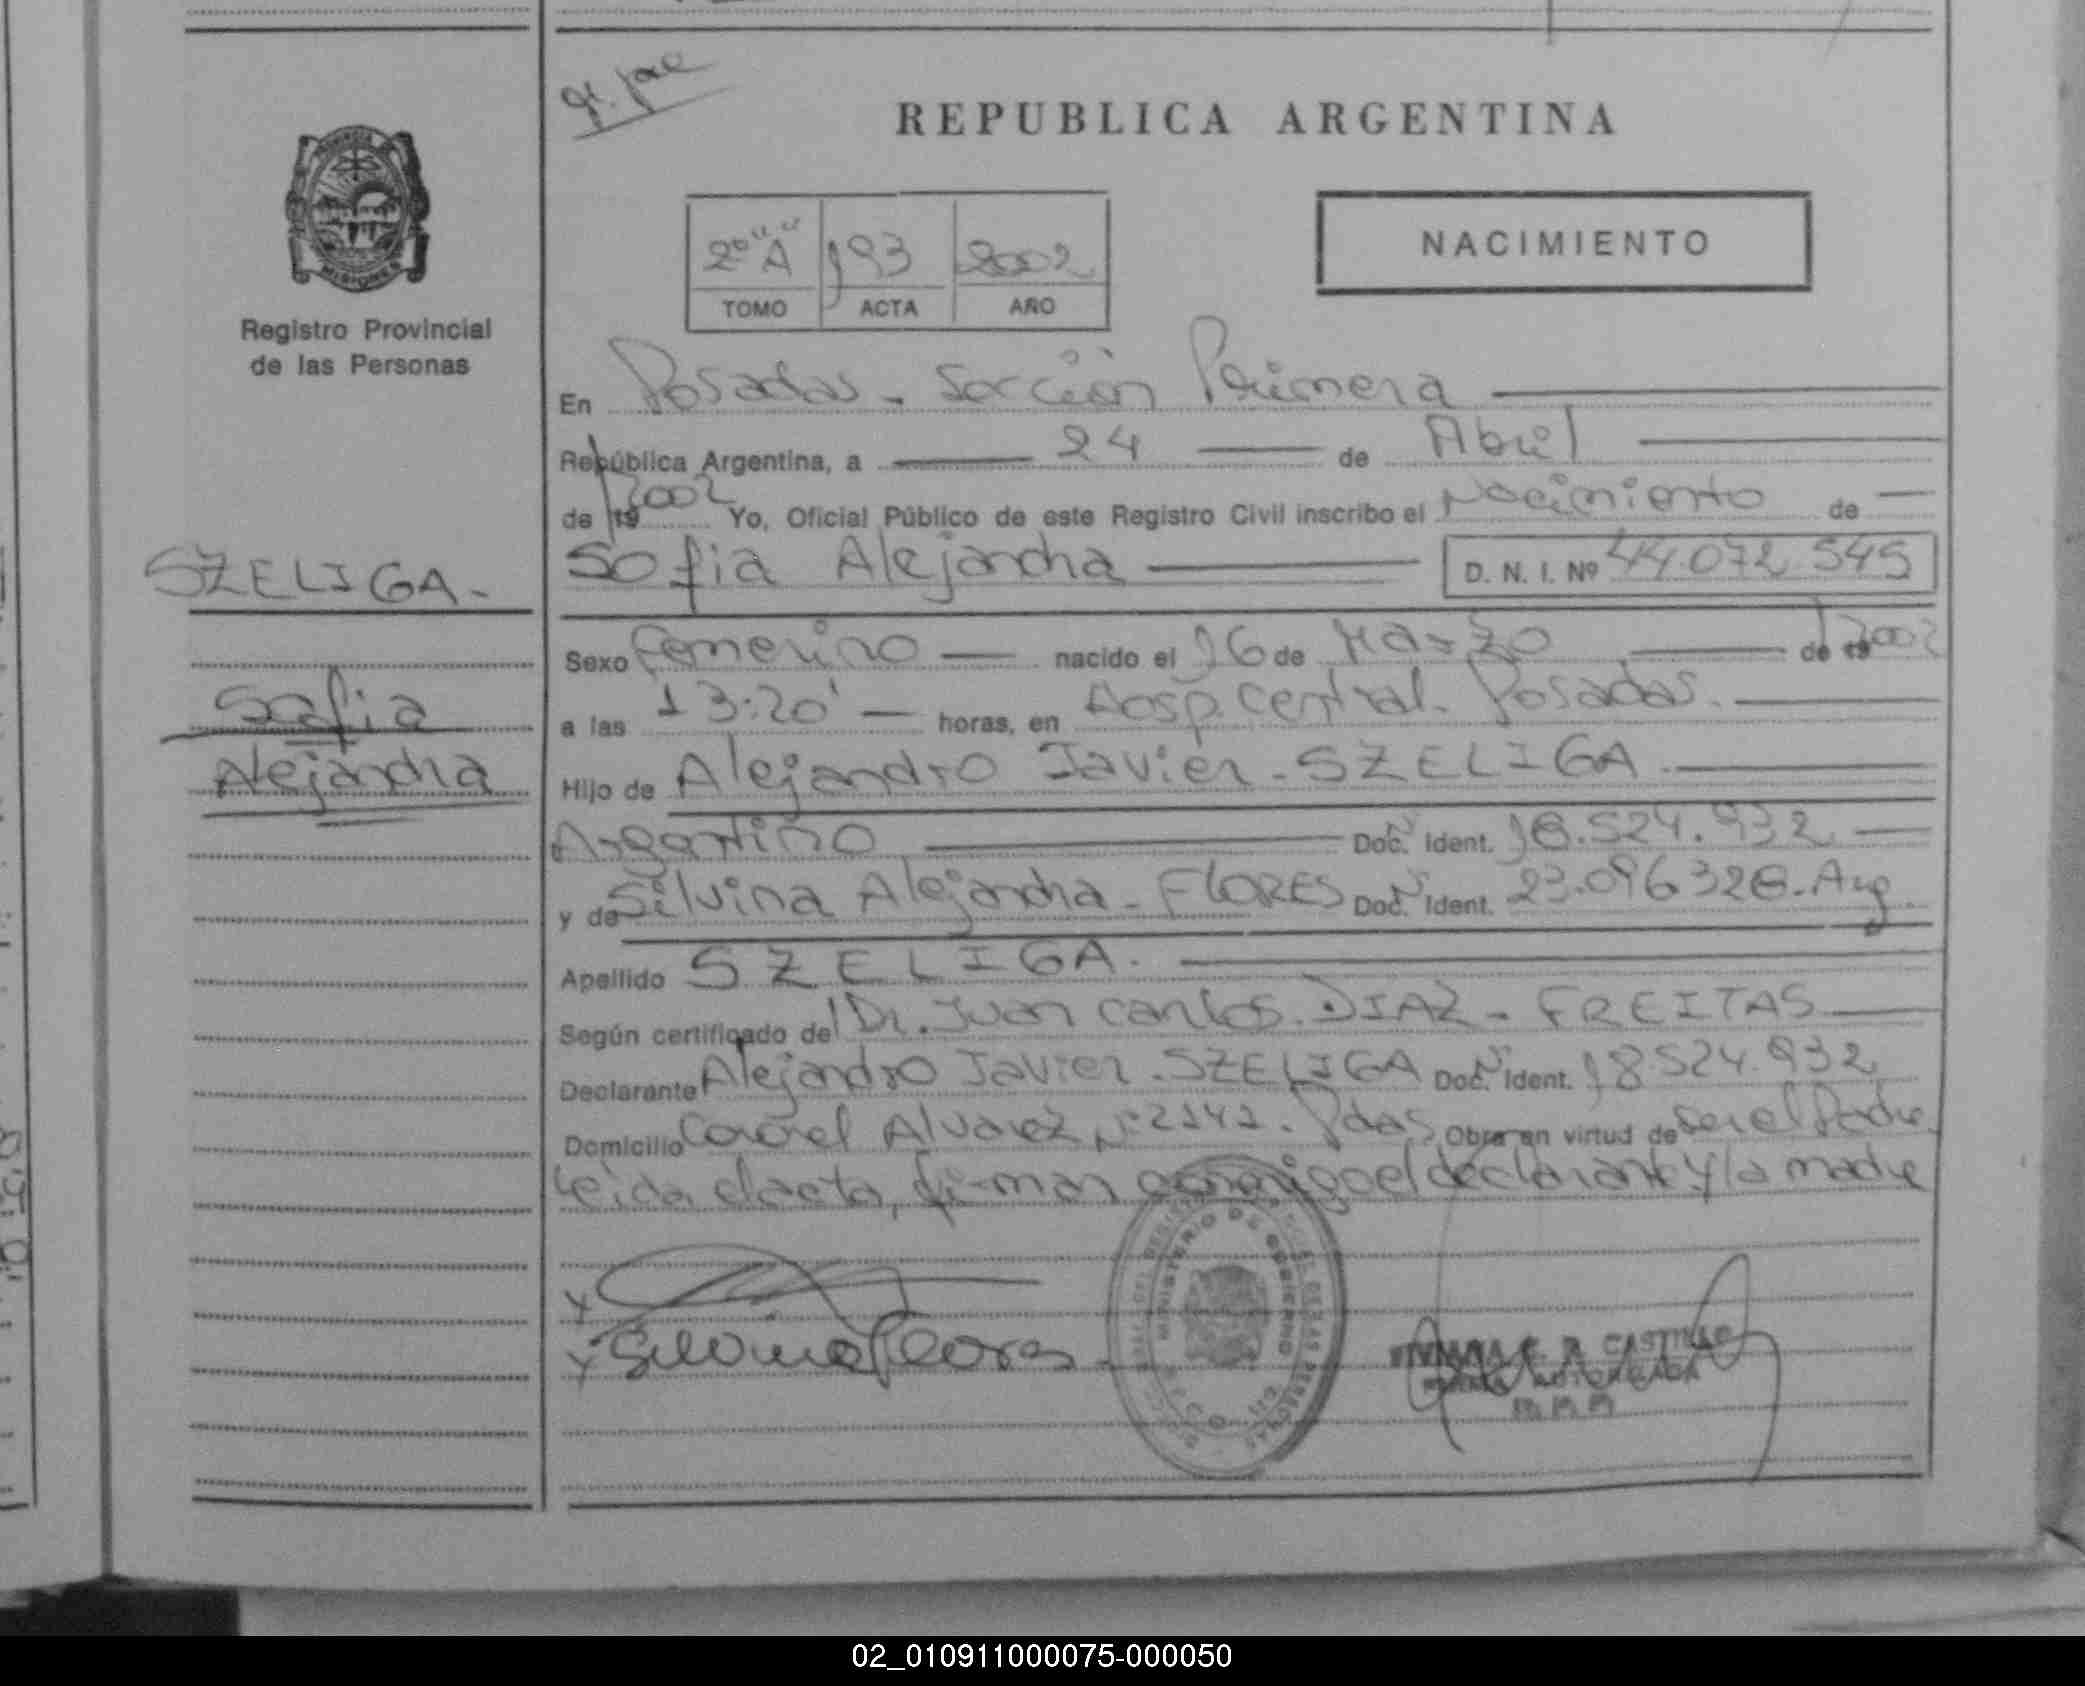 REPUBLICA ARGENTINA
2º "A" 193 2002
TOMO ACTA AÑO
NACIMIENTO
MISIONES
Registro Provincial
de las Personas
SZELIGA.
Sofia
Alejandra
En Posadas - Sección Primera
República Argentina, a 24 de Abril
de 19 2002 Yo, Oficial Público de este Registro Civil inscribo el Nacimiento de
Sofia Alejandra D. N. I. Nº 44.072.545
Sexo femenino nacido el 16 de Marzo de 19 2002
a las 13:20' horas, en Hosp. Central. Posadas.
Hijo de Alejandro Javier - SZELIGA.
Argentino Doc. Ident. 18.524.932
y de Silvina Alejandra - FLORES Doc. Ident. 23.096328 - Arg.
Apellido SZELIGA.
Según certificado del Dr. Juan Carlos. DIAZ - FREITAS
Declarante Alejandro Javier - SZELIGA Doc. Ident. 18.524.932
Domicilio Coronel Alvarez Nº 2142. Pdas. Obra en virtud de ser el Padre.
Leida el acta, firman conmigo el declarante y la madre
Silvina Flores
MINISTERIO DE GOBIERNO
CASTILLO
FIRMA AUTORIZADA
02_010911000075-000050